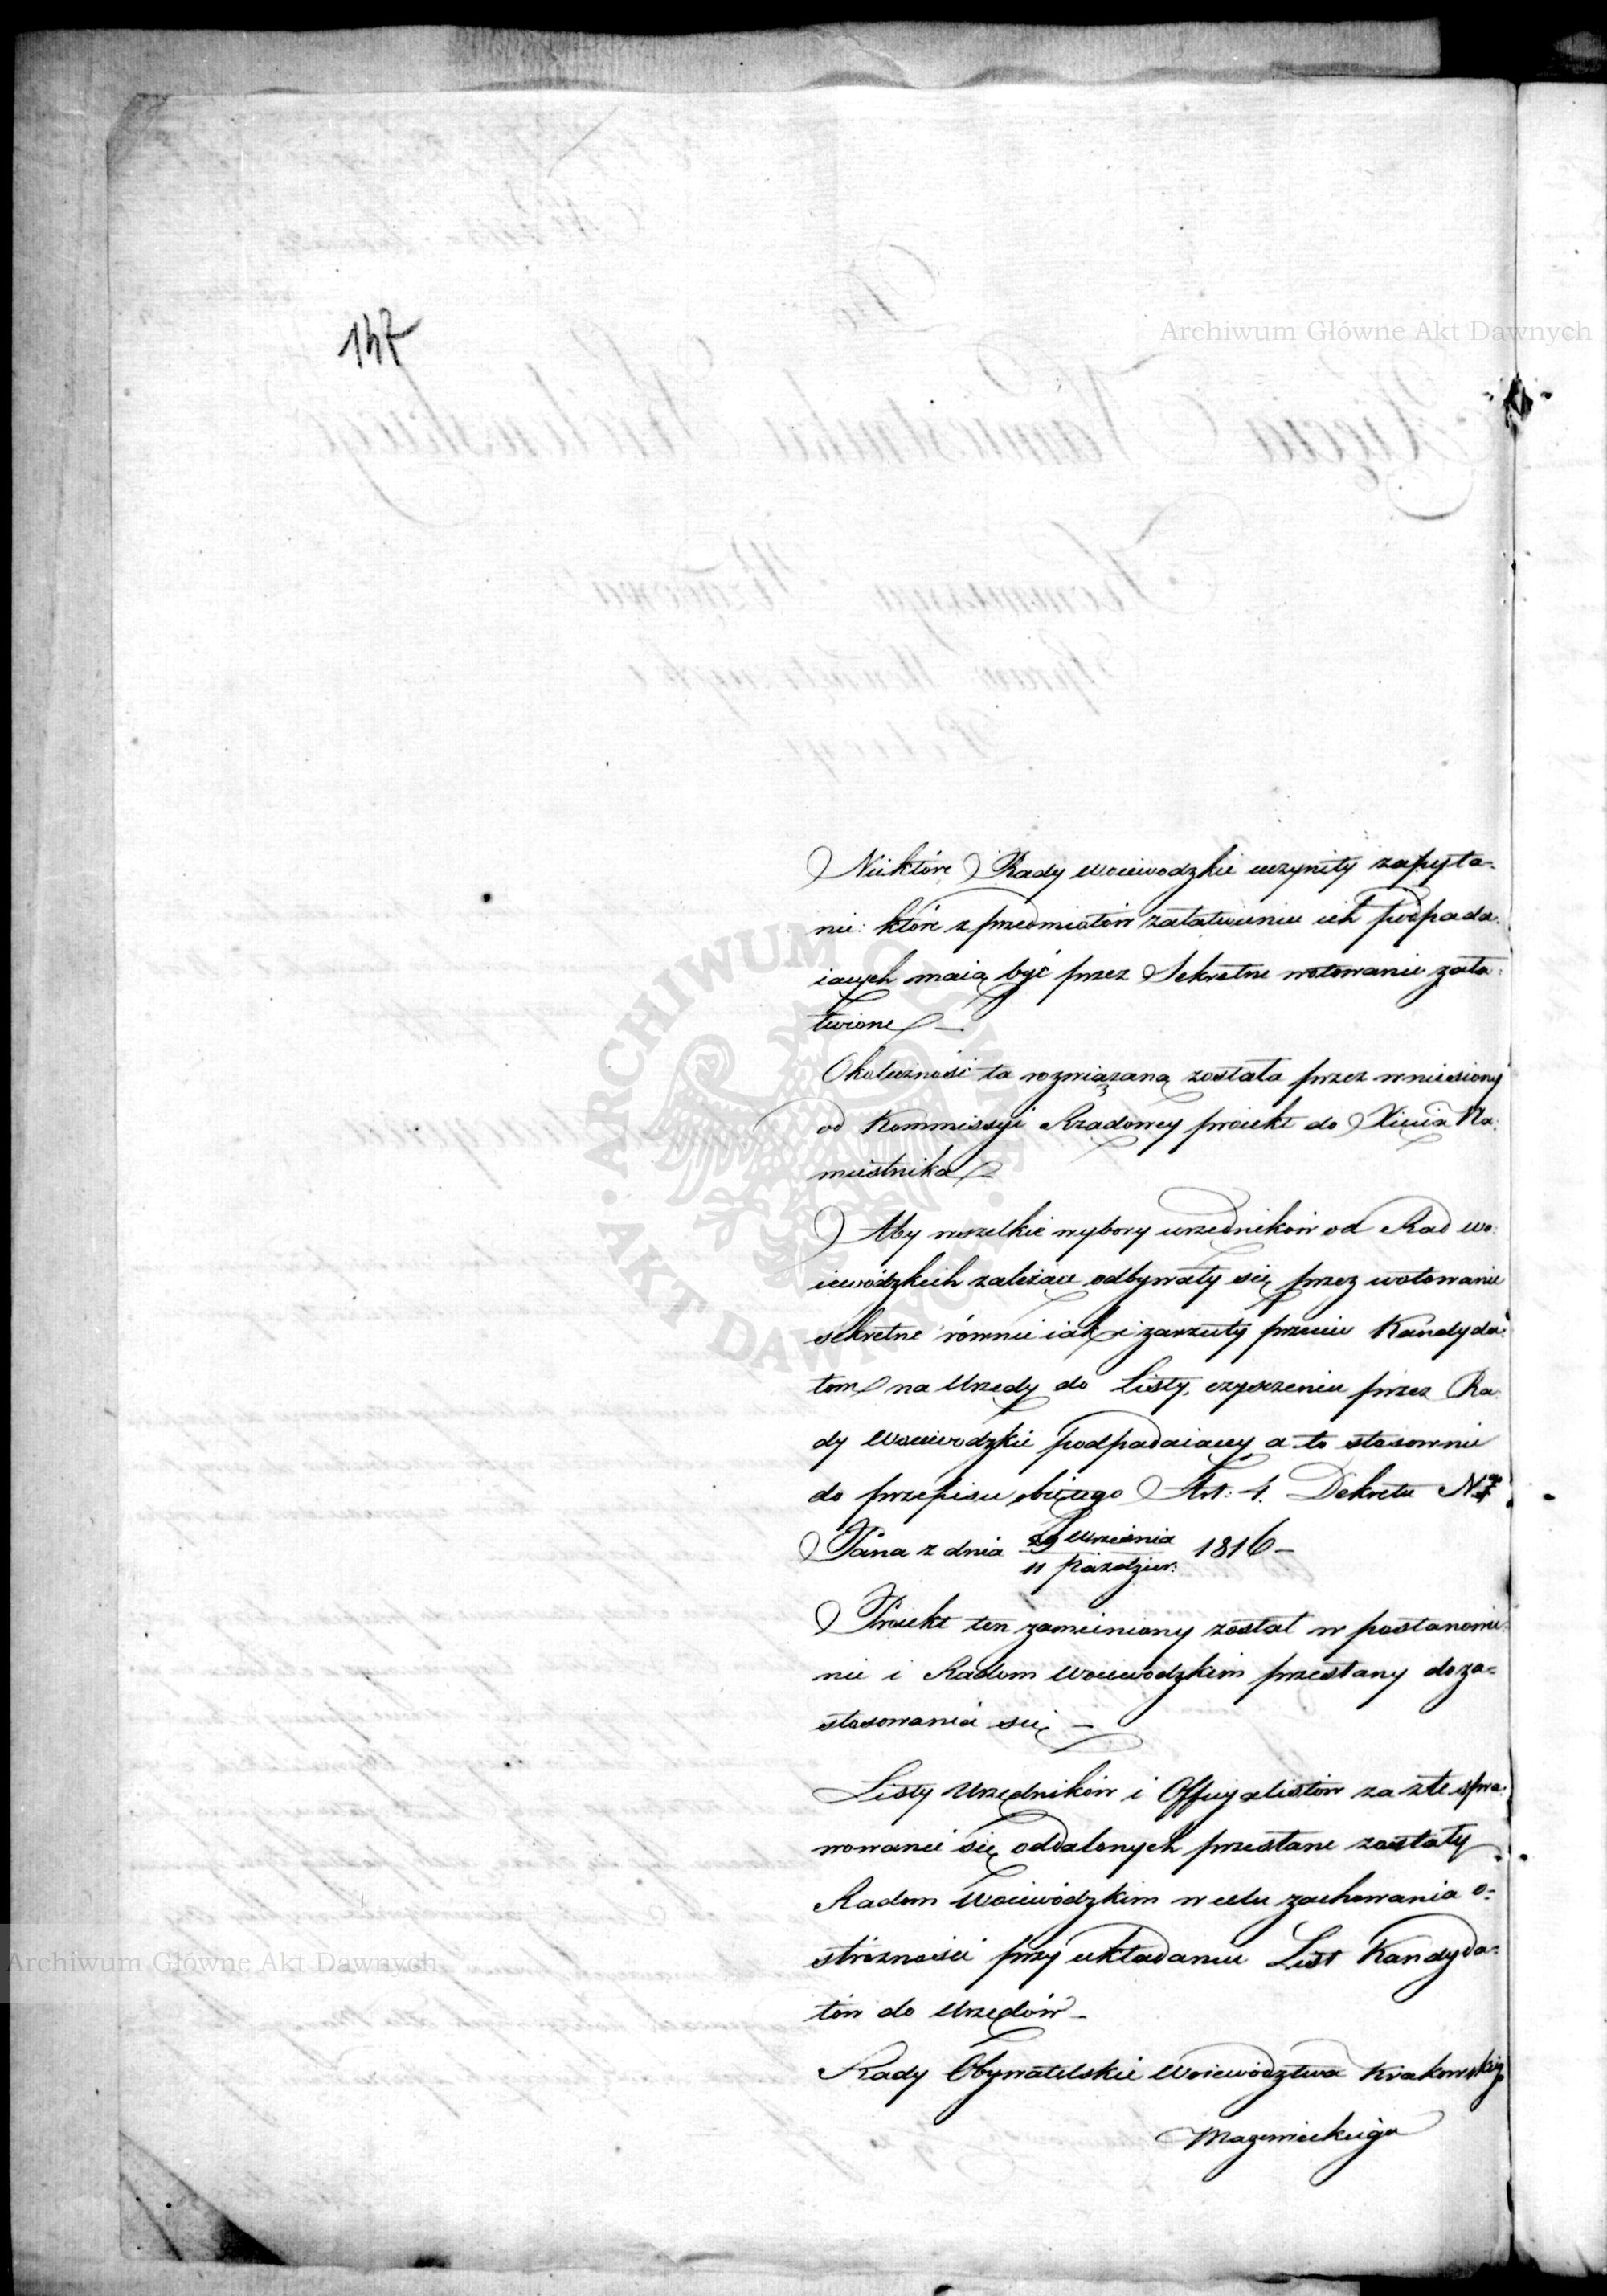 147
Niektóre Rady Woiewodzkie uczyniły zapyta-
nie: które z przedmiotów załatwieniu ich podpada-
iących maią być przez Sekretne wotowanie zała-
twione
Okoliczność ta rozwiązaną została przez wniesiony
od Kommissyi Rządowey proiekt do Xięcia Na-
miestnika
Aby wszelkie wybory urzędników od Rad Wo-
iewódzkich zależące odbywały się przez wotowanie
sekretne równie iak i zarzuty przeciw Kandyda-
tom na Urzędy do Listy, czyszczeniu przez Ra-
dy Woiewodzkie podpadaiącey a to stosownie
do przepisu obiętego Art: 4. Dekretu
Pana z dnia 29 Września / 11 Paździer: 1816 -
Proiekt ten zamieniony został w postanowie-
nie i Radom Woiewodzkim przesłany do za-
stosowania się -
Listy Urzędników i Officyalistów za złe spra-
wowanie się oddalonych przesłane zostały
Radom Woiewódzkim w celu zachowania o-
strożności przy układaniu List Kandyda-
tów do Urzędów -
Rady Obywatelskie Województwa Krakowskiego
Mazowieckiego
Archiwum Główne Akt Dawnych
Archiwum Główne Akt Dawnych
ARCHIWUM GŁÓWNE AKT DAWNYCH